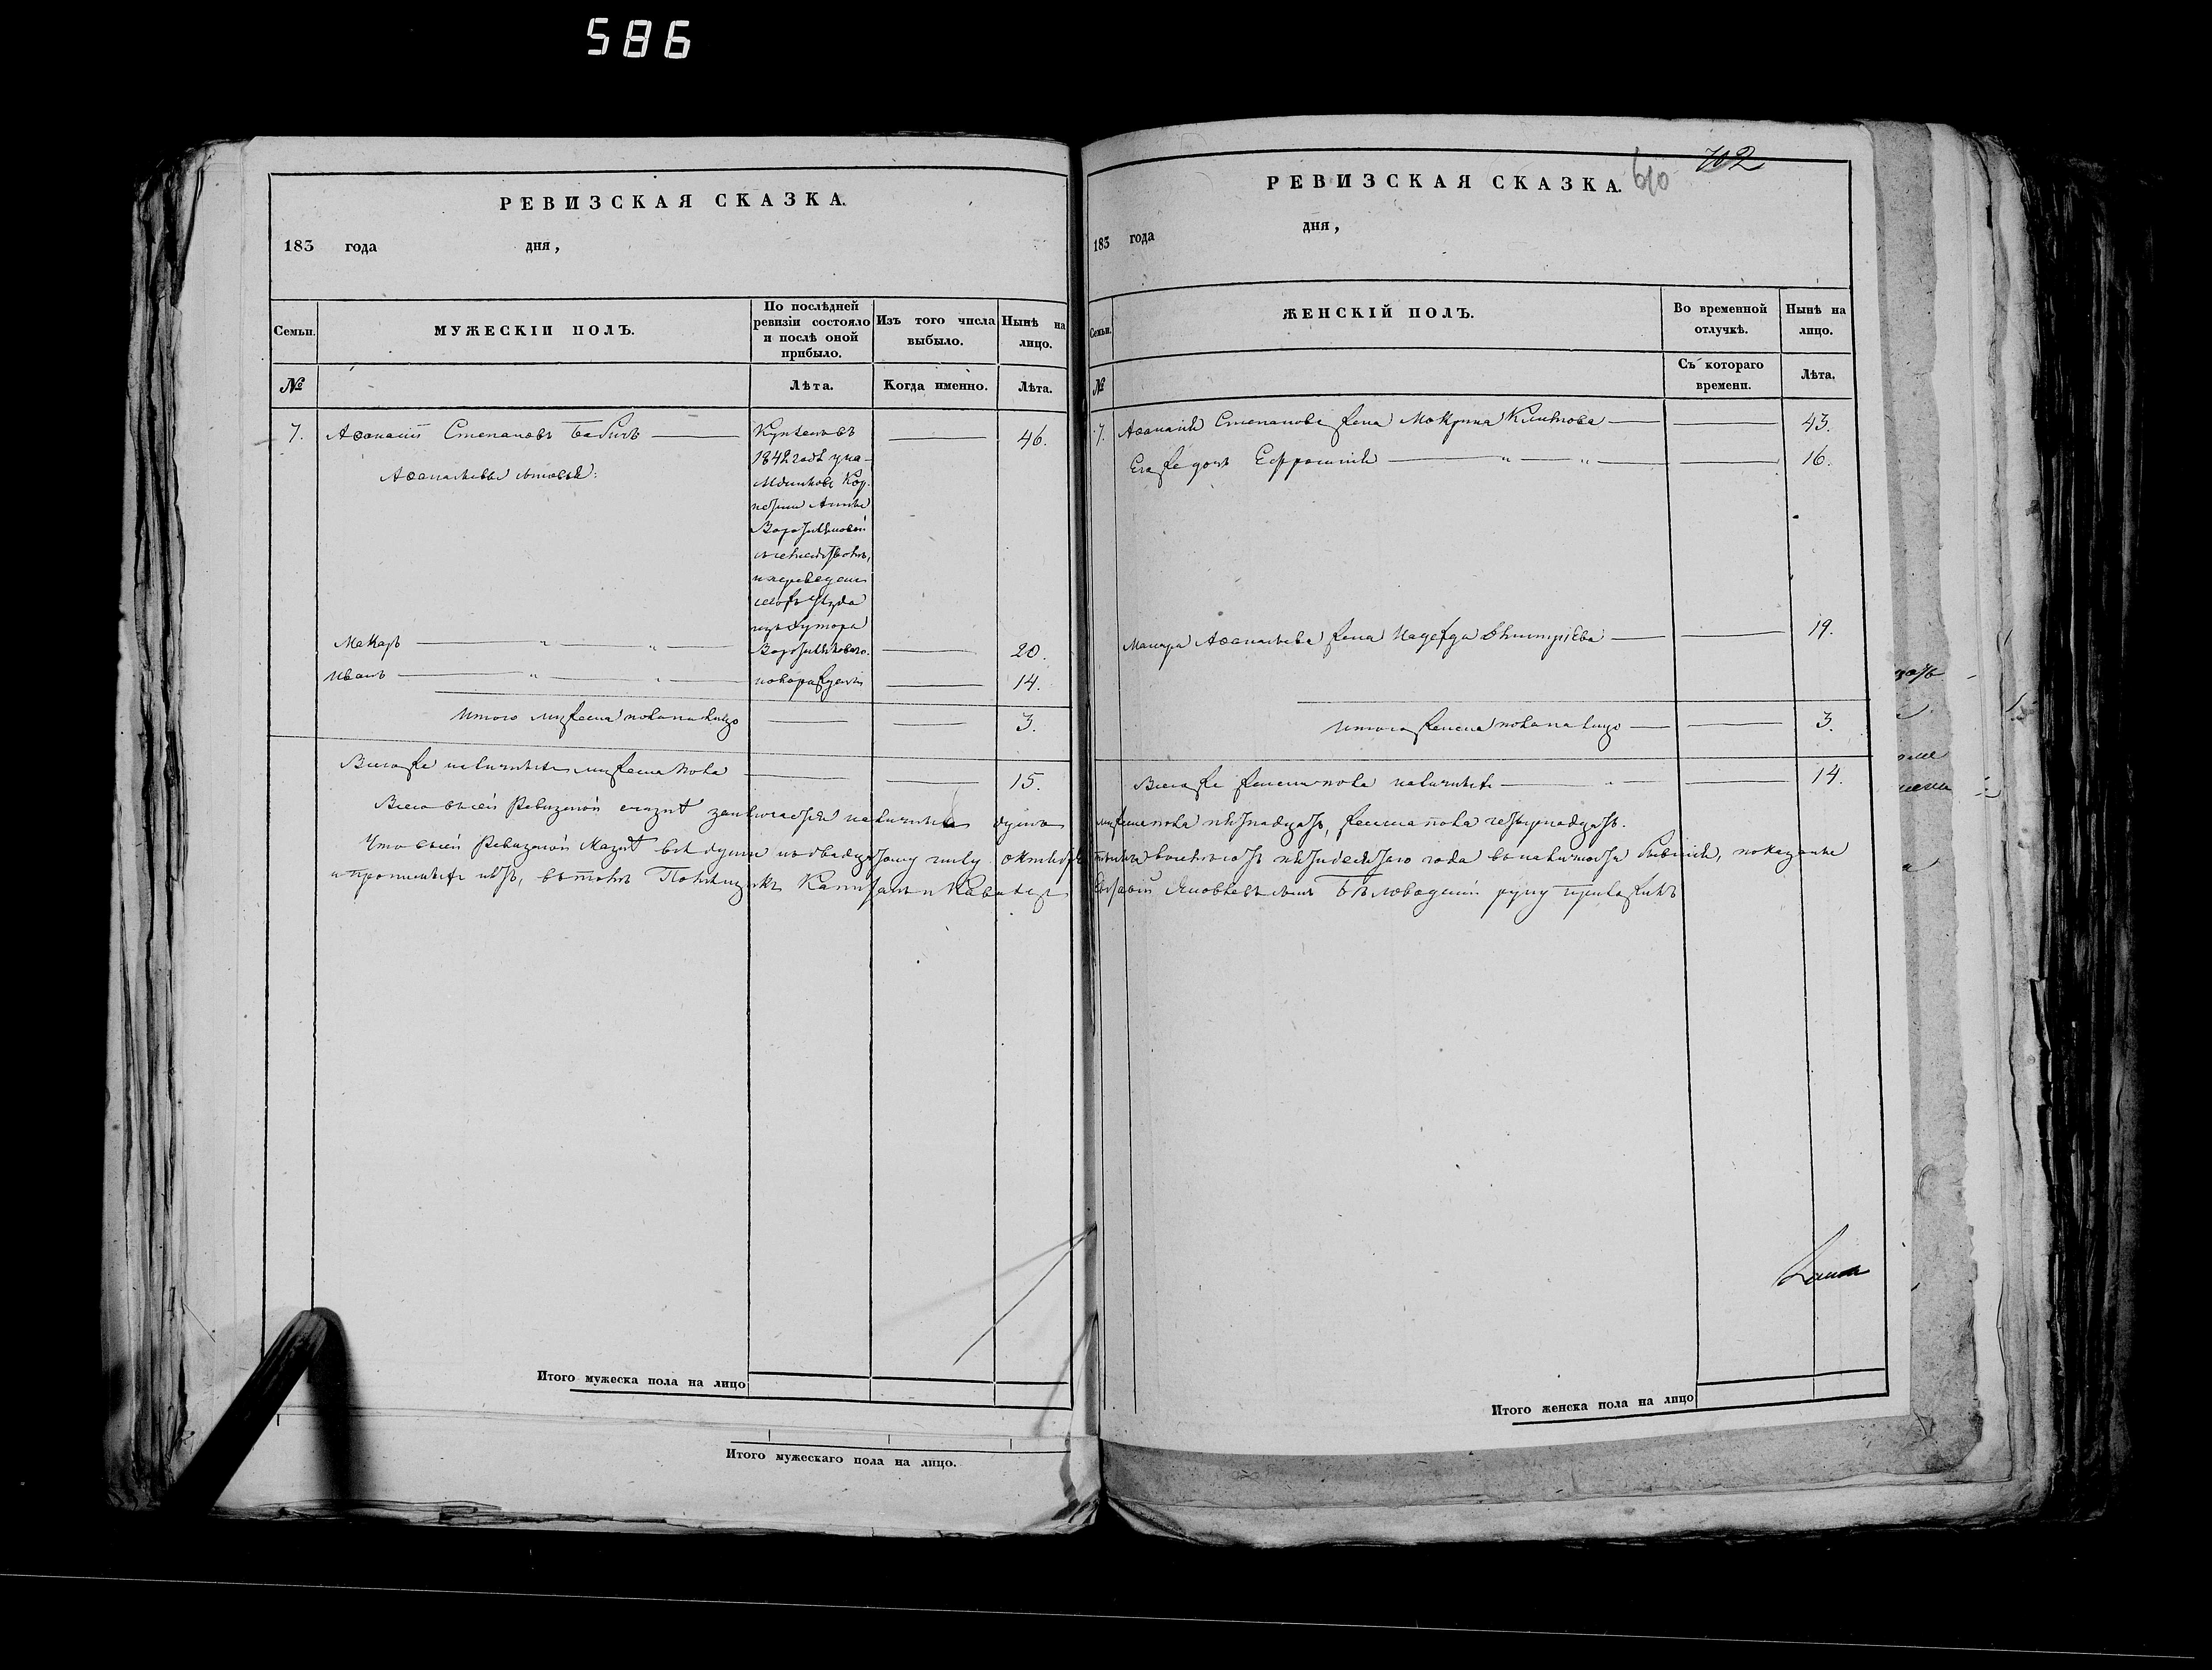 586
РЕВИЗСКАЯ СКАЗКА.
183 года дня,
Семьи.
МУЖЕСКІЙ ПОЛЪ.
По послѣдней ревизіи состояло и послѣ оной прибыло.
Изъ того числа выбыло.
Нынѣ на лицо.
№
Лѣта.
Когда именно.
Лѣта.
7. Аѳанасій Степановъ Бабичъ
46.
Купленъ въ
1842 году у по-
мѣщиковъ Кор
Аѳанасьевы сыновья:
изъ хутора
Макаръ " "
20.
Иванъ " "
новорожденъ
14.
Итого мужеска пола на лицо
3.
Всего же наличныхъ мужеска пола
15.
Всего въ сей Ревизской сказкѣ заключается наличныхъ душъ
Что въ сей Ревизской сказкѣ всѣ души къ двадцатому числу октября
и прописныхъ нѣтъ, въ томъ Помѣщикъ Капитанъ и Кавалеръ
Итого мужеска пола на лицо
Итого мужескаго пола на лицо.
702
610
РЕВИЗСКАЯ СКАЗКА.
183 года дня,
Семьи.
ЖЕНСКІЙ ПОЛЪ.
Во временной отлучкѣ.
Нынѣ на лицо.
№
Съ котораго времени.
Лѣта.
7. Аѳанасія Степанова жена Макрина Климова
43.
Его же дочь Ефросинія " "
16.
Макара Аѳанасьева жена Надежда Дмитріева
19.
Итого женска пола на лицо
3.
Всего же женска пола наличныхъ
14.
мужеска пола пятнадцать, женска пола четырнадцать.
тысяча восемьсотъ пятидесятого года въ наличности бывшія, показаны
Яковлевъ сынъ Бѣловодскій руку приложилъ
Итого женска пола на лицо